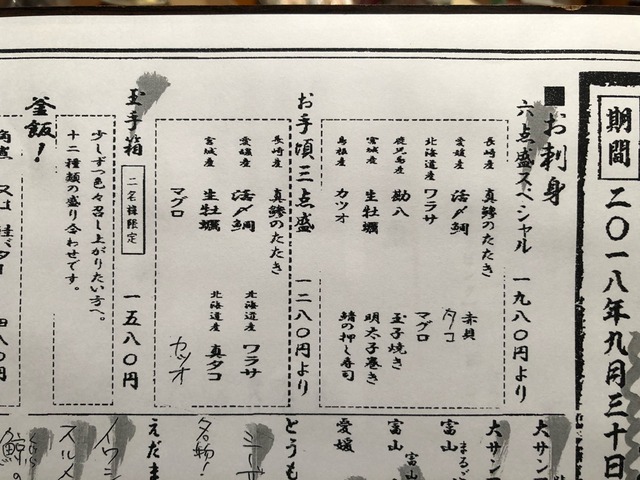 期間
二〇一八年九月三十日
■お刺身
六点盛スペシャル 一九八〇円より
長崎産 真鯵のたたき
愛媛産 活〆鯛
北海道産 ワラサ
鹿児島産 勘八
宮城産 生牡蠣
島根産 カツオ
赤貝
タコ
マグロ
玉子焼き
明太子巻き
鯖の押し寿司
お手頃三点盛 一二八〇円より
長崎産 真鯵のたたき
愛媛産 活〆鯛
宮城産 生牡蠣
マグロ
北海道産 ワラサ
北海道産 真タコ
カツオ
玉手箱 二名様限定 一五八〇円
少しずつ色々召し上がりたい方へ。
十二種類の盛り合わせです。
釜飯!
大サン
大サン
富山
富山
愛媛
とうも
名物!
えだま
イワシ
スルメ